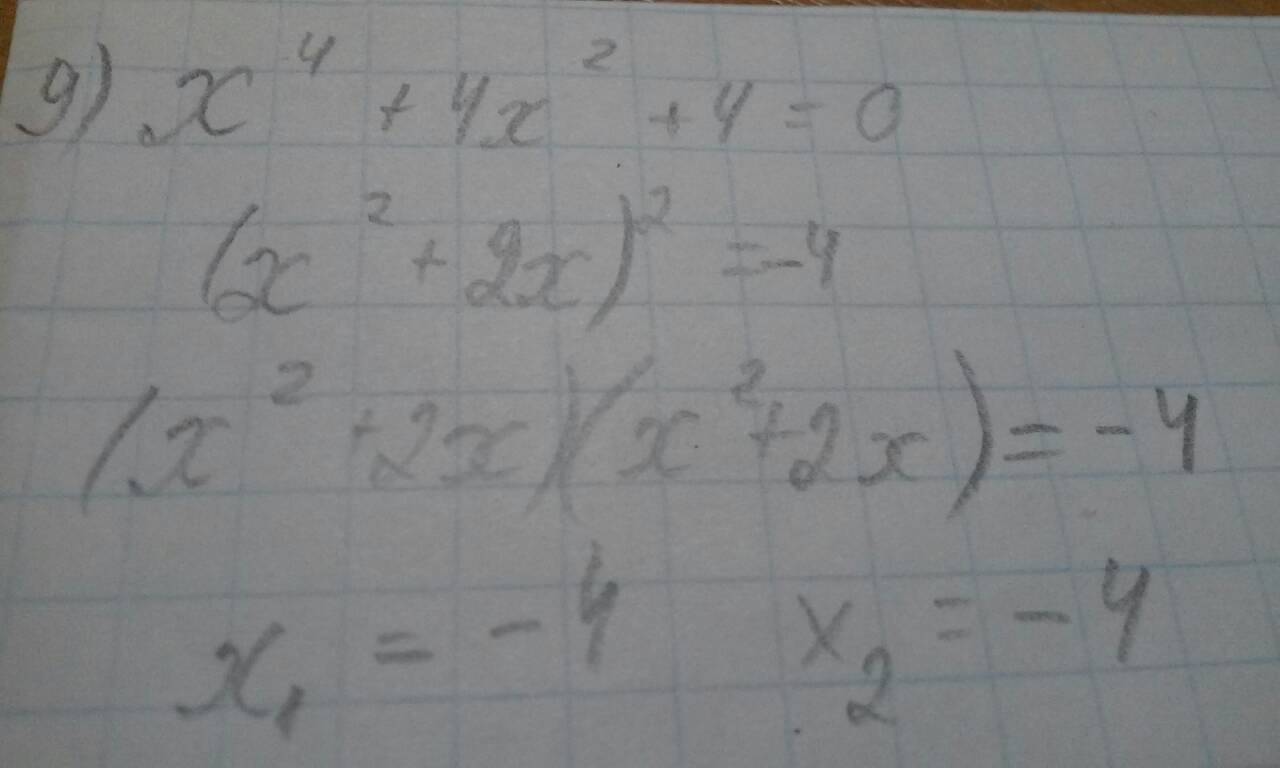 9) x⁴ + 4x² + 4 = 0
(x² + 2x)² = -4
(x² + 2x)(x² + 2x) = -4
x₁ = -4 x₂ = -4